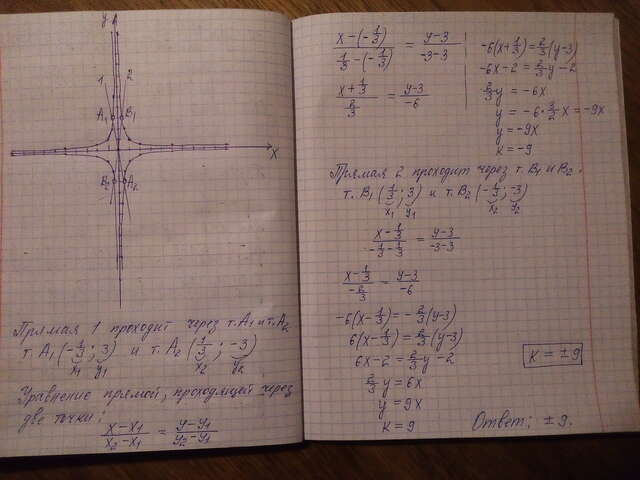 y
1
2
A₁
B₁
X
B₂
A₂
Прямая 1 проходит через т.A₁ и т.A₂
т. A₁(-1/3; 3) и т. A₂(1/3; -3)
x₁ y₁ x₂ y₂
Уравнение прямой, проходящей через
две точки:
(x-x₁)/(x₂-x₁) = (y-y₁)/(y₂-y₁)
(x-(-1/3))/(1/3-(-1/3)) = (y-3)/(-3-3)
(x+1/3)/(2/3) = (y-3)/(-6)
-6(x+1/3)=2/3(y-3)
-6x-2=2/3y-2
2/3y = -6x
y = -6*3/2x = -9x
y = -9x
k = -9
Прямая 2 проходит через т. B₁ и B₂.
т. B₁(1/3; 3) и т. B₂(-1/3; -3)
x₁ y₁ x₂ y₂
(x-1/3)/(-1/3-1/3) = (y-3)/(-3-3)
(x-1/3)/(-2/3) = (y-3)/(-6)
-6(x-1/3)=-2/3(y-3)
6(x-1/3)=2/3(y-3)
6x-2=2/3y-2
2/3y = 6x
y = 9x
k = 9
k = ±9
Ответ: ±9.